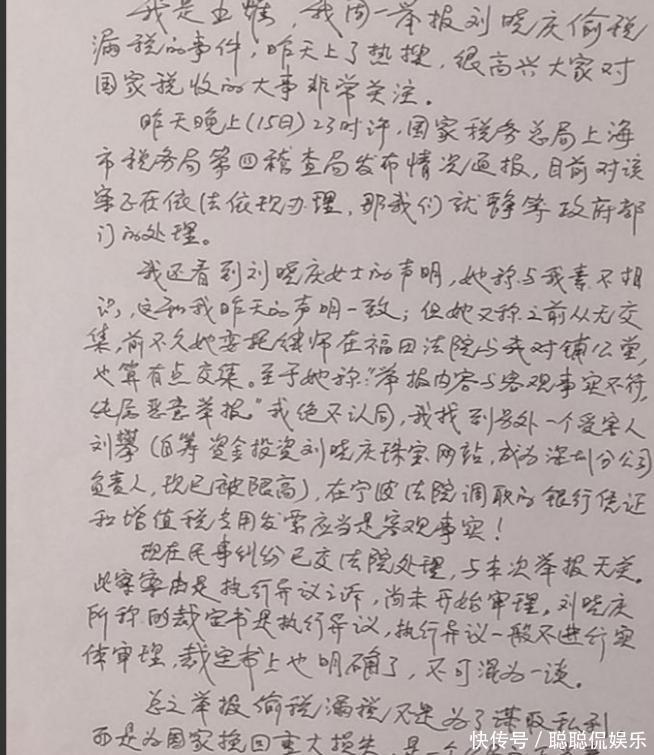 我是    ，我周一举报刘晓庆偷税
漏税的事件，昨天上了热搜，很高兴大家对
国家税收的大事非常关注。
昨天晚上(15日)23时许，国家税务总局上海
市税务局第四稽查局发布情况通报，目前对该
案正在依法依规办理，那我们就静等政府部
门的处理。
我还看到刘晓庆女士的声明，她称与我素不相
识，这和我昨天的声明一致；但她又称之前从无交
集，前不久她委托律师在福田法院与我对铺公堂，
也算有点交集。至于她称:"举报内容与客观事实不符，
纯属恶意举报。"我绝不认同，我找到另外一个受害人
刘攀(自筹资金投资刘晓庆珠宝网站，成为深圳分公司
负责人，现已被限高)，在宁波法院调取的银行凭证
和增值税专用发票应当是客观事实！
现在民事纠纷已交法院处理，与本次举报无关。
此案案由是执行异议之诉，尚未开始审理。刘晓庆
所称的裁定书是执行异议，执行异议一般不进行实
体审理，裁定书上也明确了，不可混为一谈。
总之举报偷税漏税不是为了谋取私利
而是为国家挽回重大损失，是一个
快传号/聪聪侃娱乐